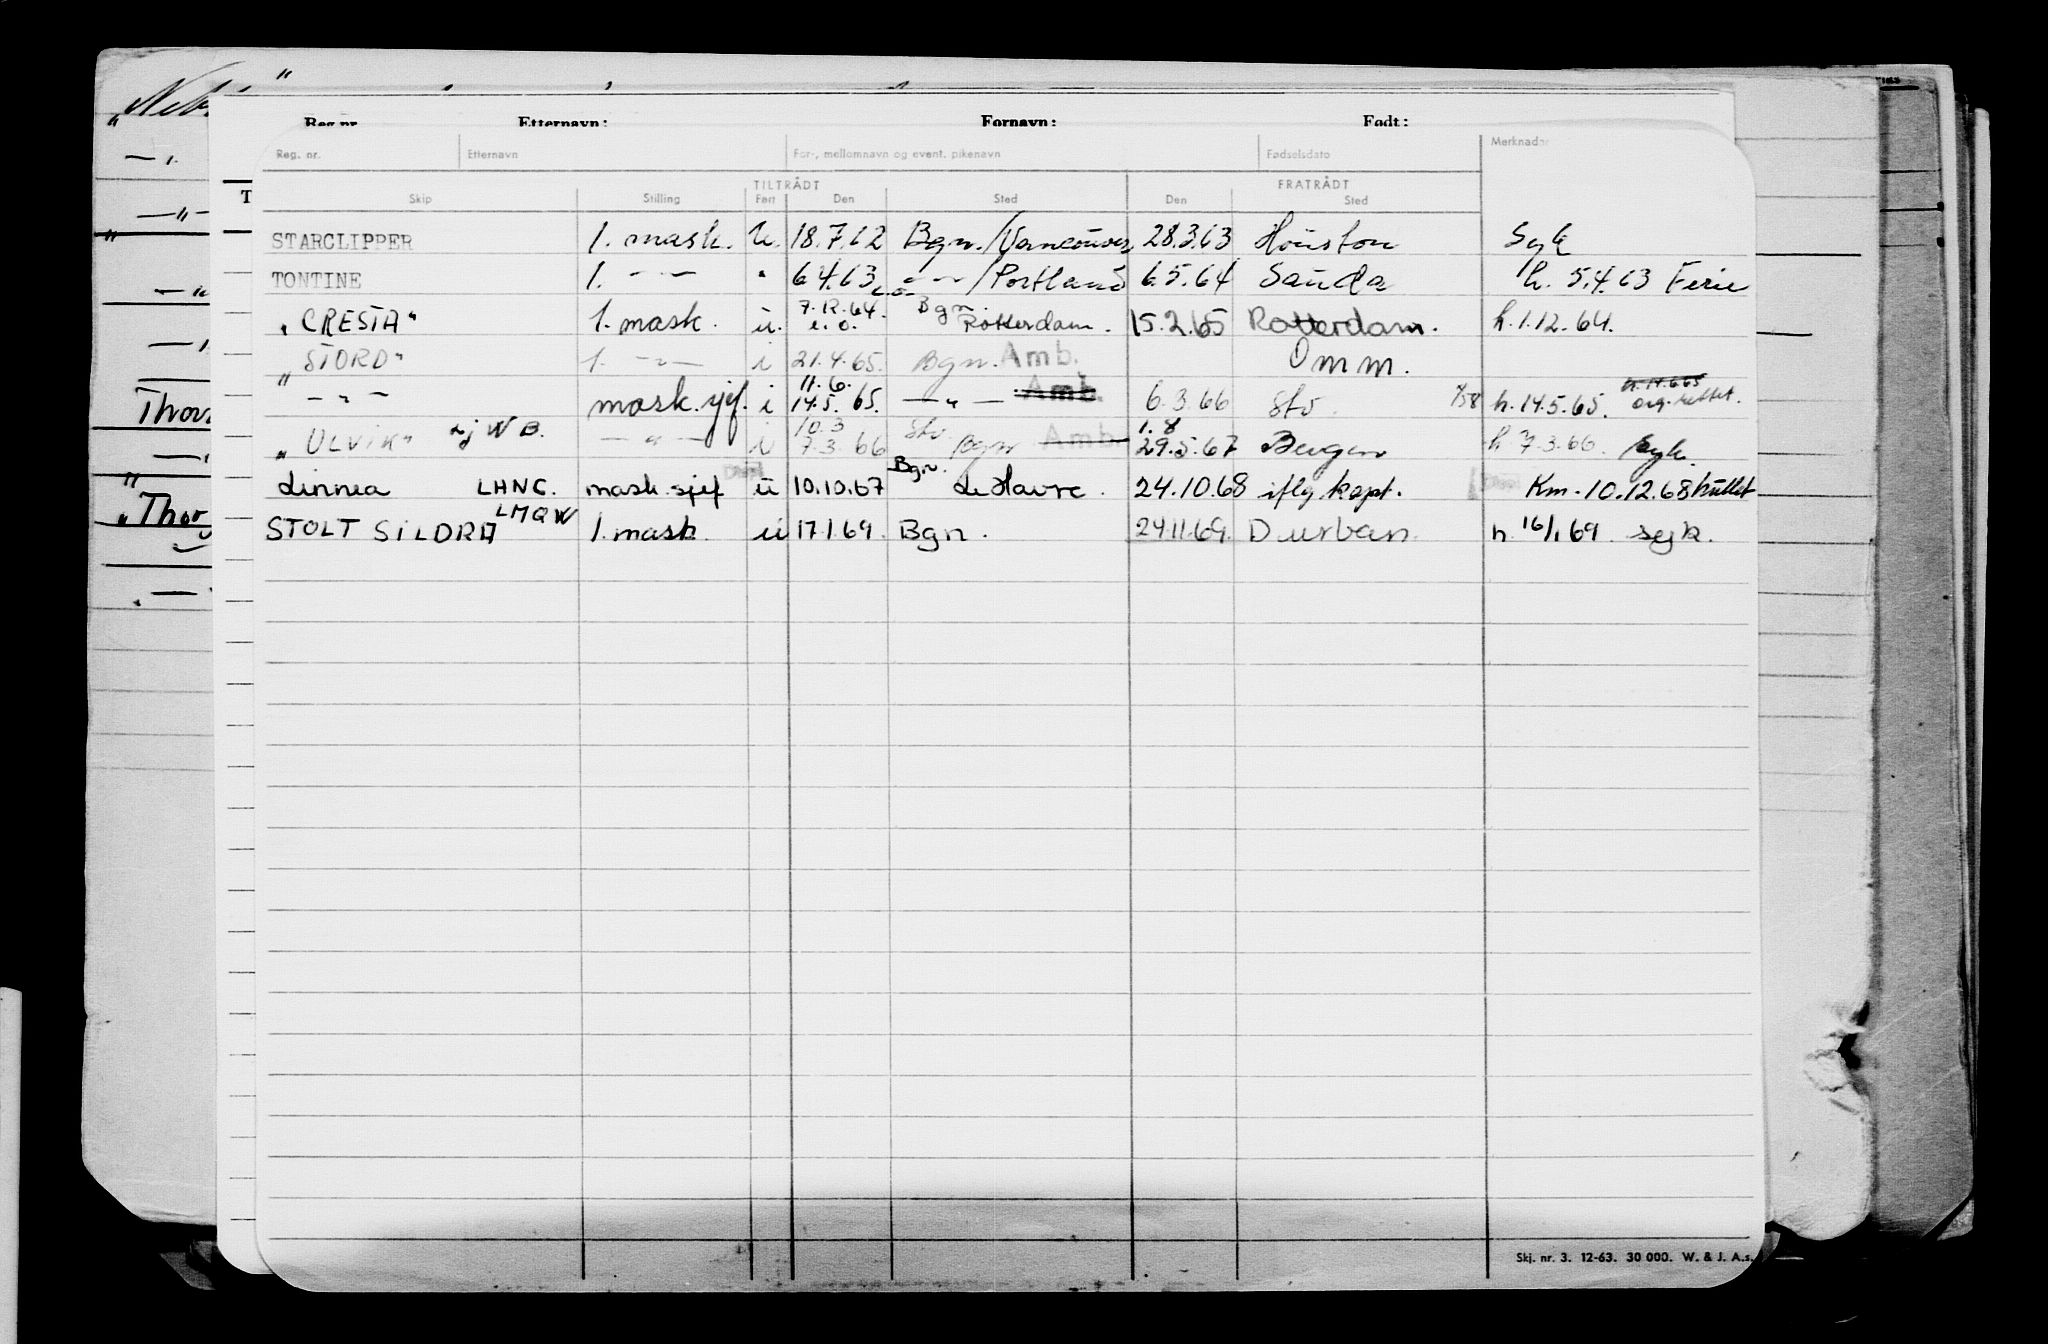 Reg. nr. Etternavn: Fornavn: Født:
Reg. nr. Etternavn For-, mellomnavn og event. pikenavn Fødselsdato Merknader
TILTRÅDT FRATRÅDT
Skip Stilling Fart Den Sted Den Sted
STARCLIPPER 1. mask. U. 18.7.62 Bgn./Vancouver 28.3.63 Houston Syk
TONTINE 1. — — " 6.4.63 — " — /Portland 6.5.64 Sauda h. 5.4.63 Ferie
7.12.64. Bgn.
"CRESTA" 1. mask. u. e.o. Rotterdam. 15.2.65 Rotterdam. h.1.12.64.
"STORD" 1. — " — i 21.4.65. Bgn. Amb. Omm.
11.6. h. 14.6.65
— " — mask.sjef. i 14.5.65. — " — Amb. 6.3.66 Sto. 1/58 h.14.5.65.
10.3 Sto. 1.8
"ULVIK" LJWB. — " — i 7.3.66 Bgn Amb. 29.5.67 Bergen h 7.3.66. syk.
Bgn.
Linnea LHNC. mask.sjef ü 10.10.67 Le Havre. 24.10.68 iflg kapt. Km. 10.12.68
LMQW
STOLT SILDRA 1. mask. ü 17.1.69. Bgn. 24.11.69. Durban. h. 16/1 69. syk.
Thor
Skj. nr. 3. 12-63. 30 000. W. & J. A.s.